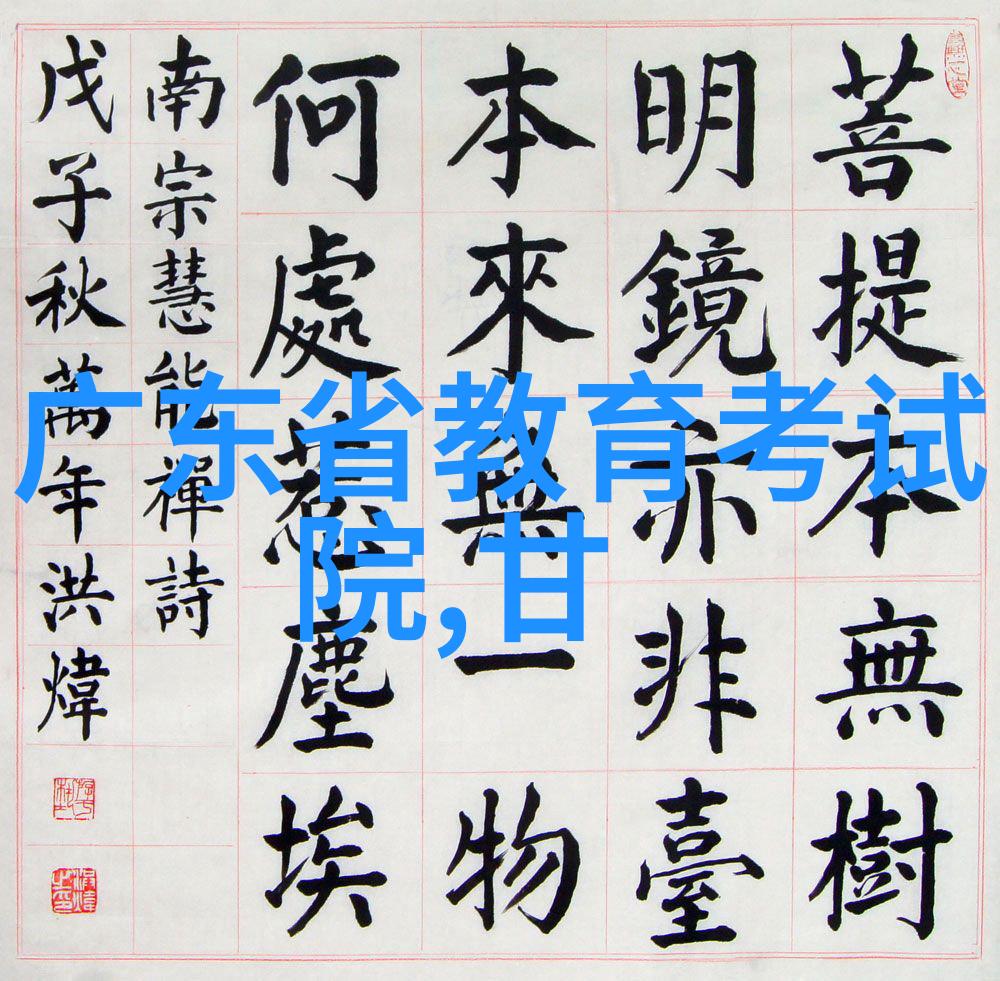 菩提本無樹
明鏡亦非臺
本來無一物
何處惹塵埃
南宗慧能禪詩
戊子秋萬年洪煒
广东省教育考试
院,甘